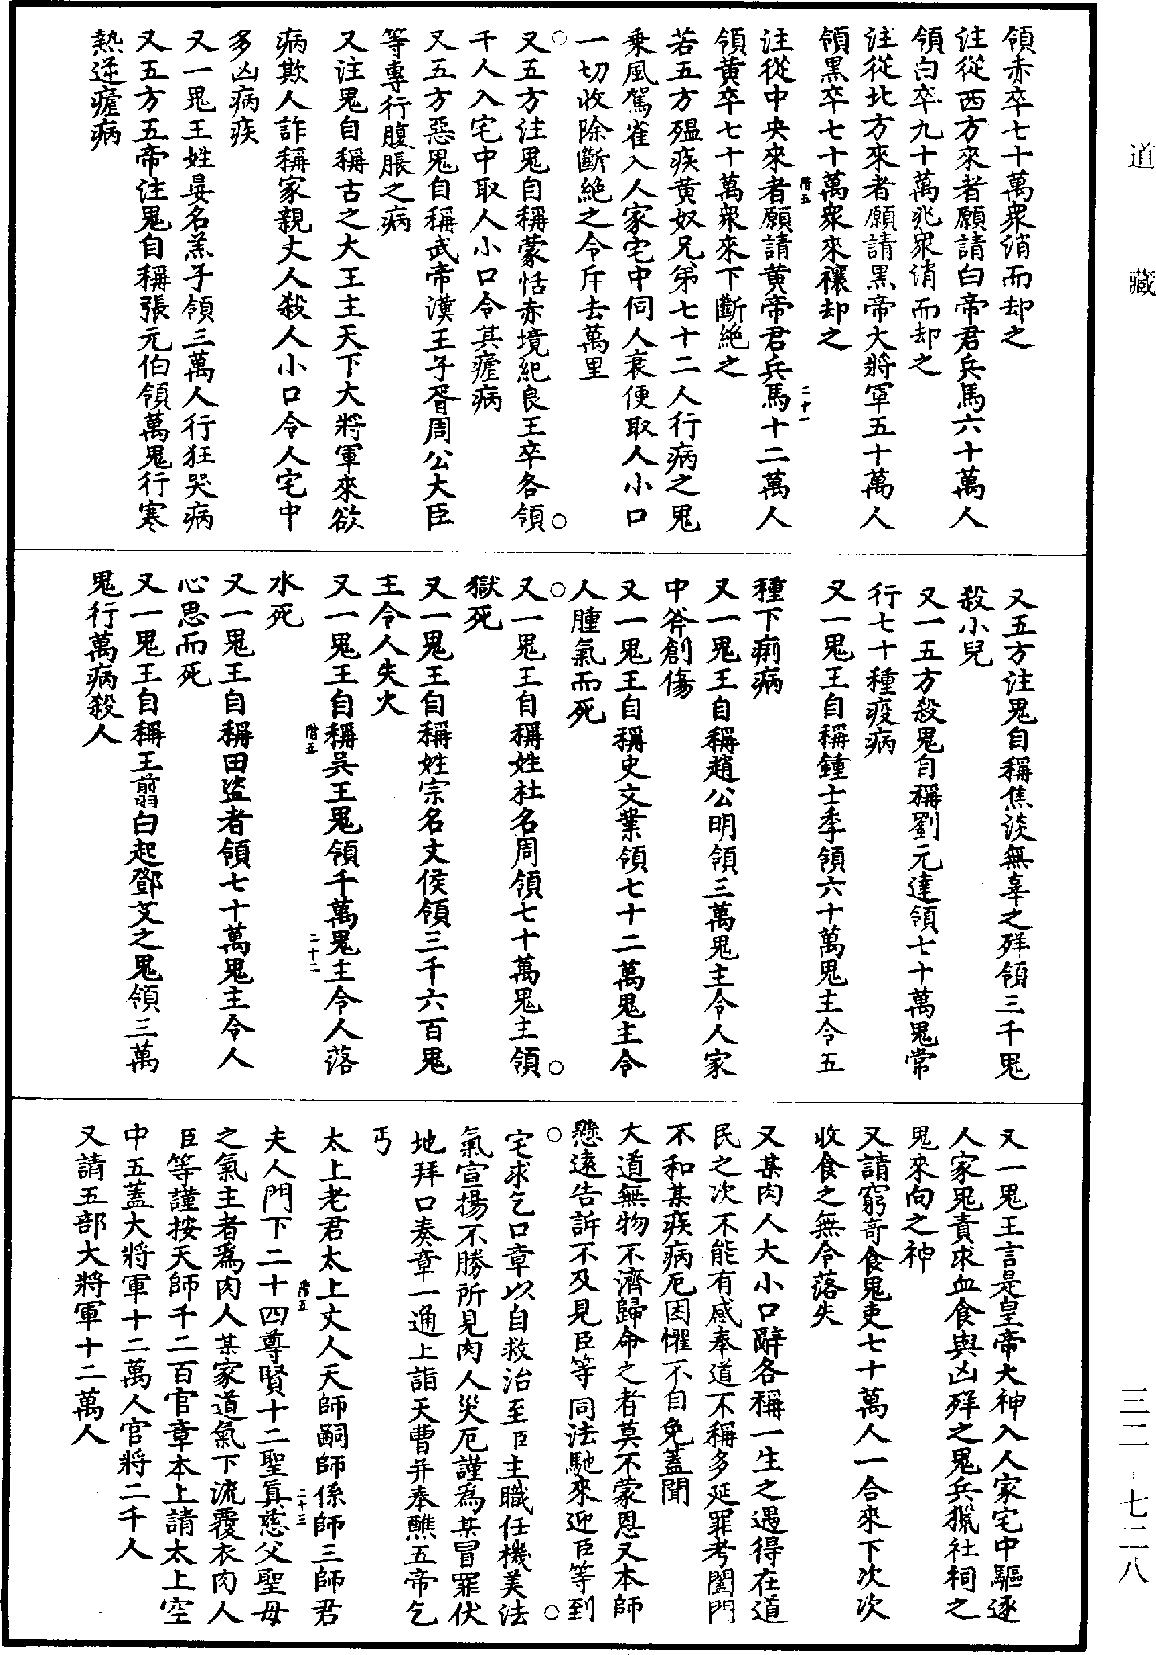 道藏
三二—七二八
領赤卒七十萬衆消而却之
注從西方來者願請白帝君兵馬六十萬人
領白卒九十萬兆衆消而却之
注從北方來者願請黑帝大將軍五十萬人
領黑卒七十萬衆來禳却之
階五
二十一
注從中央來者願請黄帝君兵馬十二萬人
領黄卒七十萬衆來下斷絶之
若五方瘟疾黄奴兄弟七十二人行病之鬼
乗風駕雀入人家宅中伺人衰便取人小口
一切收除斷絶之令斥去萬里
又五方注鬼自稱蒙恬赤境紀良王卒各領
千人入宅中取人小口令其瘧病
又五方惡鬼自稱武帝漢王子胥周公大臣
等專行腹脹之病
又注鬼自稱古之大王主天下大將軍來欲
病欺人詐稱家親丈人殺人小口令人宅中
多凶病疾
又一鬼王姓晏名羔子領三萬人行狂哭病
又五方五帝注鬼自稱張元伯領萬鬼行寒
熱逆瘧病
又五方注鬼自稱焦談無辜之殍領三千鬼
殺小兒
又一五方殺鬼自稱劉元達領七十萬鬼常
行七十種疫病
又一鬼王自稱鍾士季領六十萬鬼主令五
種下痢病
又一鬼王自稱趙公明領三萬鬼主令人家
中斧創傷
又一鬼王自稱史文業領七十二萬鬼主令
人腫氣而死
又一鬼王自稱姓社名周領七十萬鬼主領
獄死
又一鬼王自稱姓宗名丈侯領三千六百鬼
主令人失火
階五
二十二
又一鬼王自稱吳王鬼領千萬鬼主令人落
水死
又一鬼王自稱田盜者領七十萬鬼主令人
心思而死
又一鬼王自稱王翦白起鄧艾之鬼領三萬
鬼行萬病殺人
又一鬼王言是皇帝大神入人家宅中驅逐
人家鬼責求血食與凶殍之鬼兵獵社祠之
鬼來向之神
又請窮奇食鬼吏七十萬人一合來下次次
收食之無令落失
又某肉人大小口辭各稱一生之遇得在道
民之次不能有感奉道不稱多延罪考闔門
不和某疾病厄困懼不自免蓋聞
大道無物不濟歸命之者莫不蒙恩又本師
懸遠告訴不及見臣等同法馳來迎臣等到
宅求乞口章以自救治至臣主職任機美法
氣宣揚不勝所見肉人災厄謹為某冒罪伏
地拜口奏章一通上詣天曹并奉醮五帝乞
丐
太上老君太上丈人天師嗣師係師三師君
階五
二十三
夫人門下二十四尊賢十二聖真慈父聖母
之氣主者爲肉人某家道氣下流覆衣肉人
臣等謹按天師千二百官章本上請太上空
中五蓋大將軍十二萬人官將二千人
又請五部大將軍十二萬人